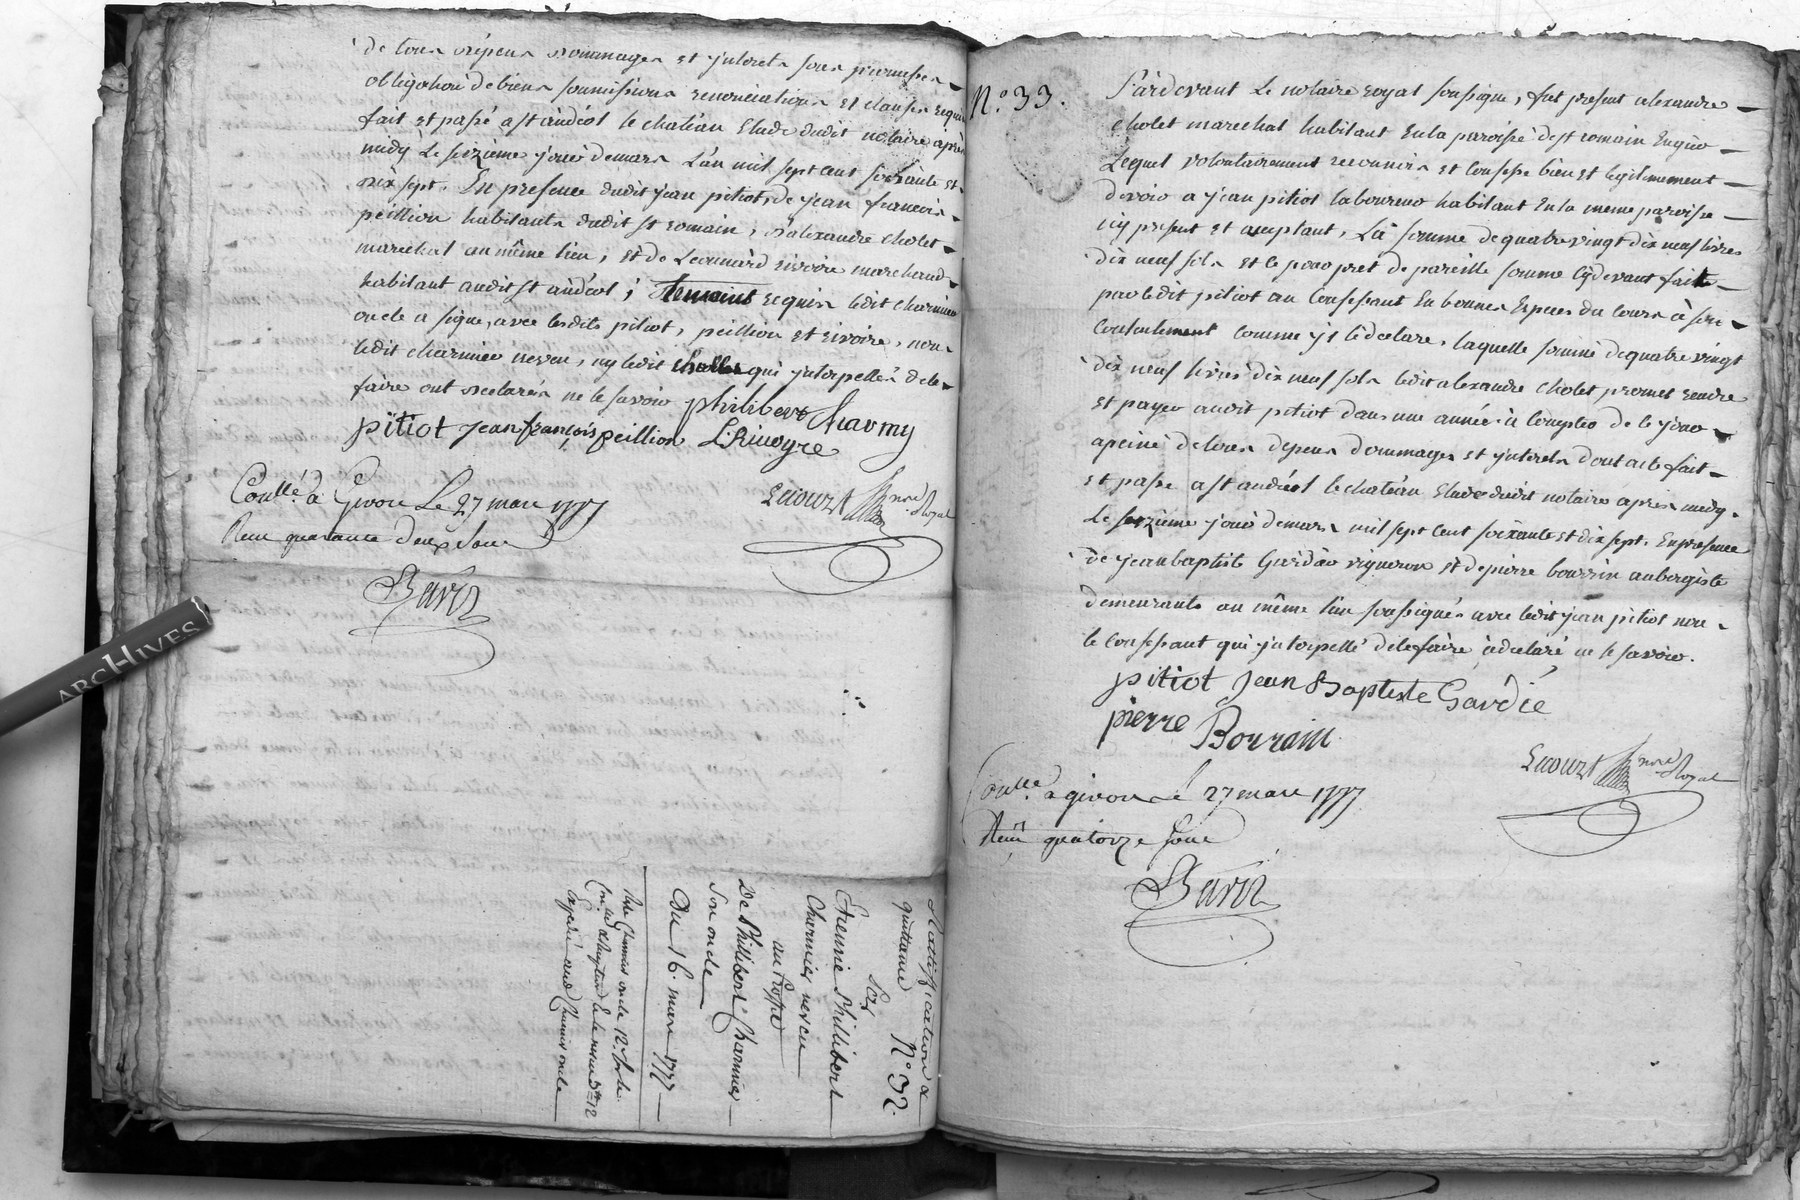 de tous dépens dommages et jnterets sous promesses
obligation de biens soumissions renonciations et clauses requi
fait et passé a st andéol le chatéau Etude dudit notaire après
midy le seizieme jour de mars l'an mil sept cent soixante et
dix sept. En presence dudit jean pitiot, de jean francois
peillion habitants dudit st romain, d'alexandre cholet
maréchal au même lieu, et de Léonnard rivoire marchand
habitant audit st andéol, Temoins requis ledit charmier
oncle a signé, avec lesdits pitiot, peillion et rivoire, non
ledit charmier neveu, ny ledit chollet qui jnterpellés de le
faire ont déclarés ne le savoir philibert Charmy
pitiot jean françois peillion L. Rivoyre
Conllé à Givors Le 27 mars 1777
Reçu quarante deux sous
nore Royal
ARCHIVES
Rattiffication &
quittance N° 32.
Par
Etienne Phillibert
Charmier neveu
au Proffit
De Phillibert Charmier
son oncle
Du 16. mars 1777
N° 33.
Pardevant le notaire royal soussigné, fut présent alexandre
cholet marechal habitant en la paroisse de st romain en gier
Lequel volontairement reconnoit et confesse bien et legitimement
devoir a jean pitiot laboureur habitant en la meme paroisse
icy present et acceptant, la somme de quatre vingt dix neuf livres
dix neuf sols et ce pour pret de pareille somme cydevant fait
par ledit pitiot au confessant en bonnes especes du cours à son
contentement comme jl le declare, laquelle somme de quatre vingt
dix neuf livres dix neuf sols ledit alexandre cholet promet rendre
et payer audit pitiot dans une année à compter de ce jour
a peine de tous depens dommages et jnterets dont acte fait
et passé a st andéol le chatéau Etude dudit notaire apres midy
Le seizieme jour de mars mil sept cent soixante et dix sept. En presence
de jean baptiste Gardier vigneron et de pierre bourrin aubergiste
demeurants au même lieu soussignés avec ledit jean pitiot non
le confessant qui jnterpellé de le faire a déclaré ne le savoir.
pitiot jean Baptiste Gardié
pierre Bourain
nore Royal
Conllé à givors le 27 mars 1777
Reçu quatorze sous